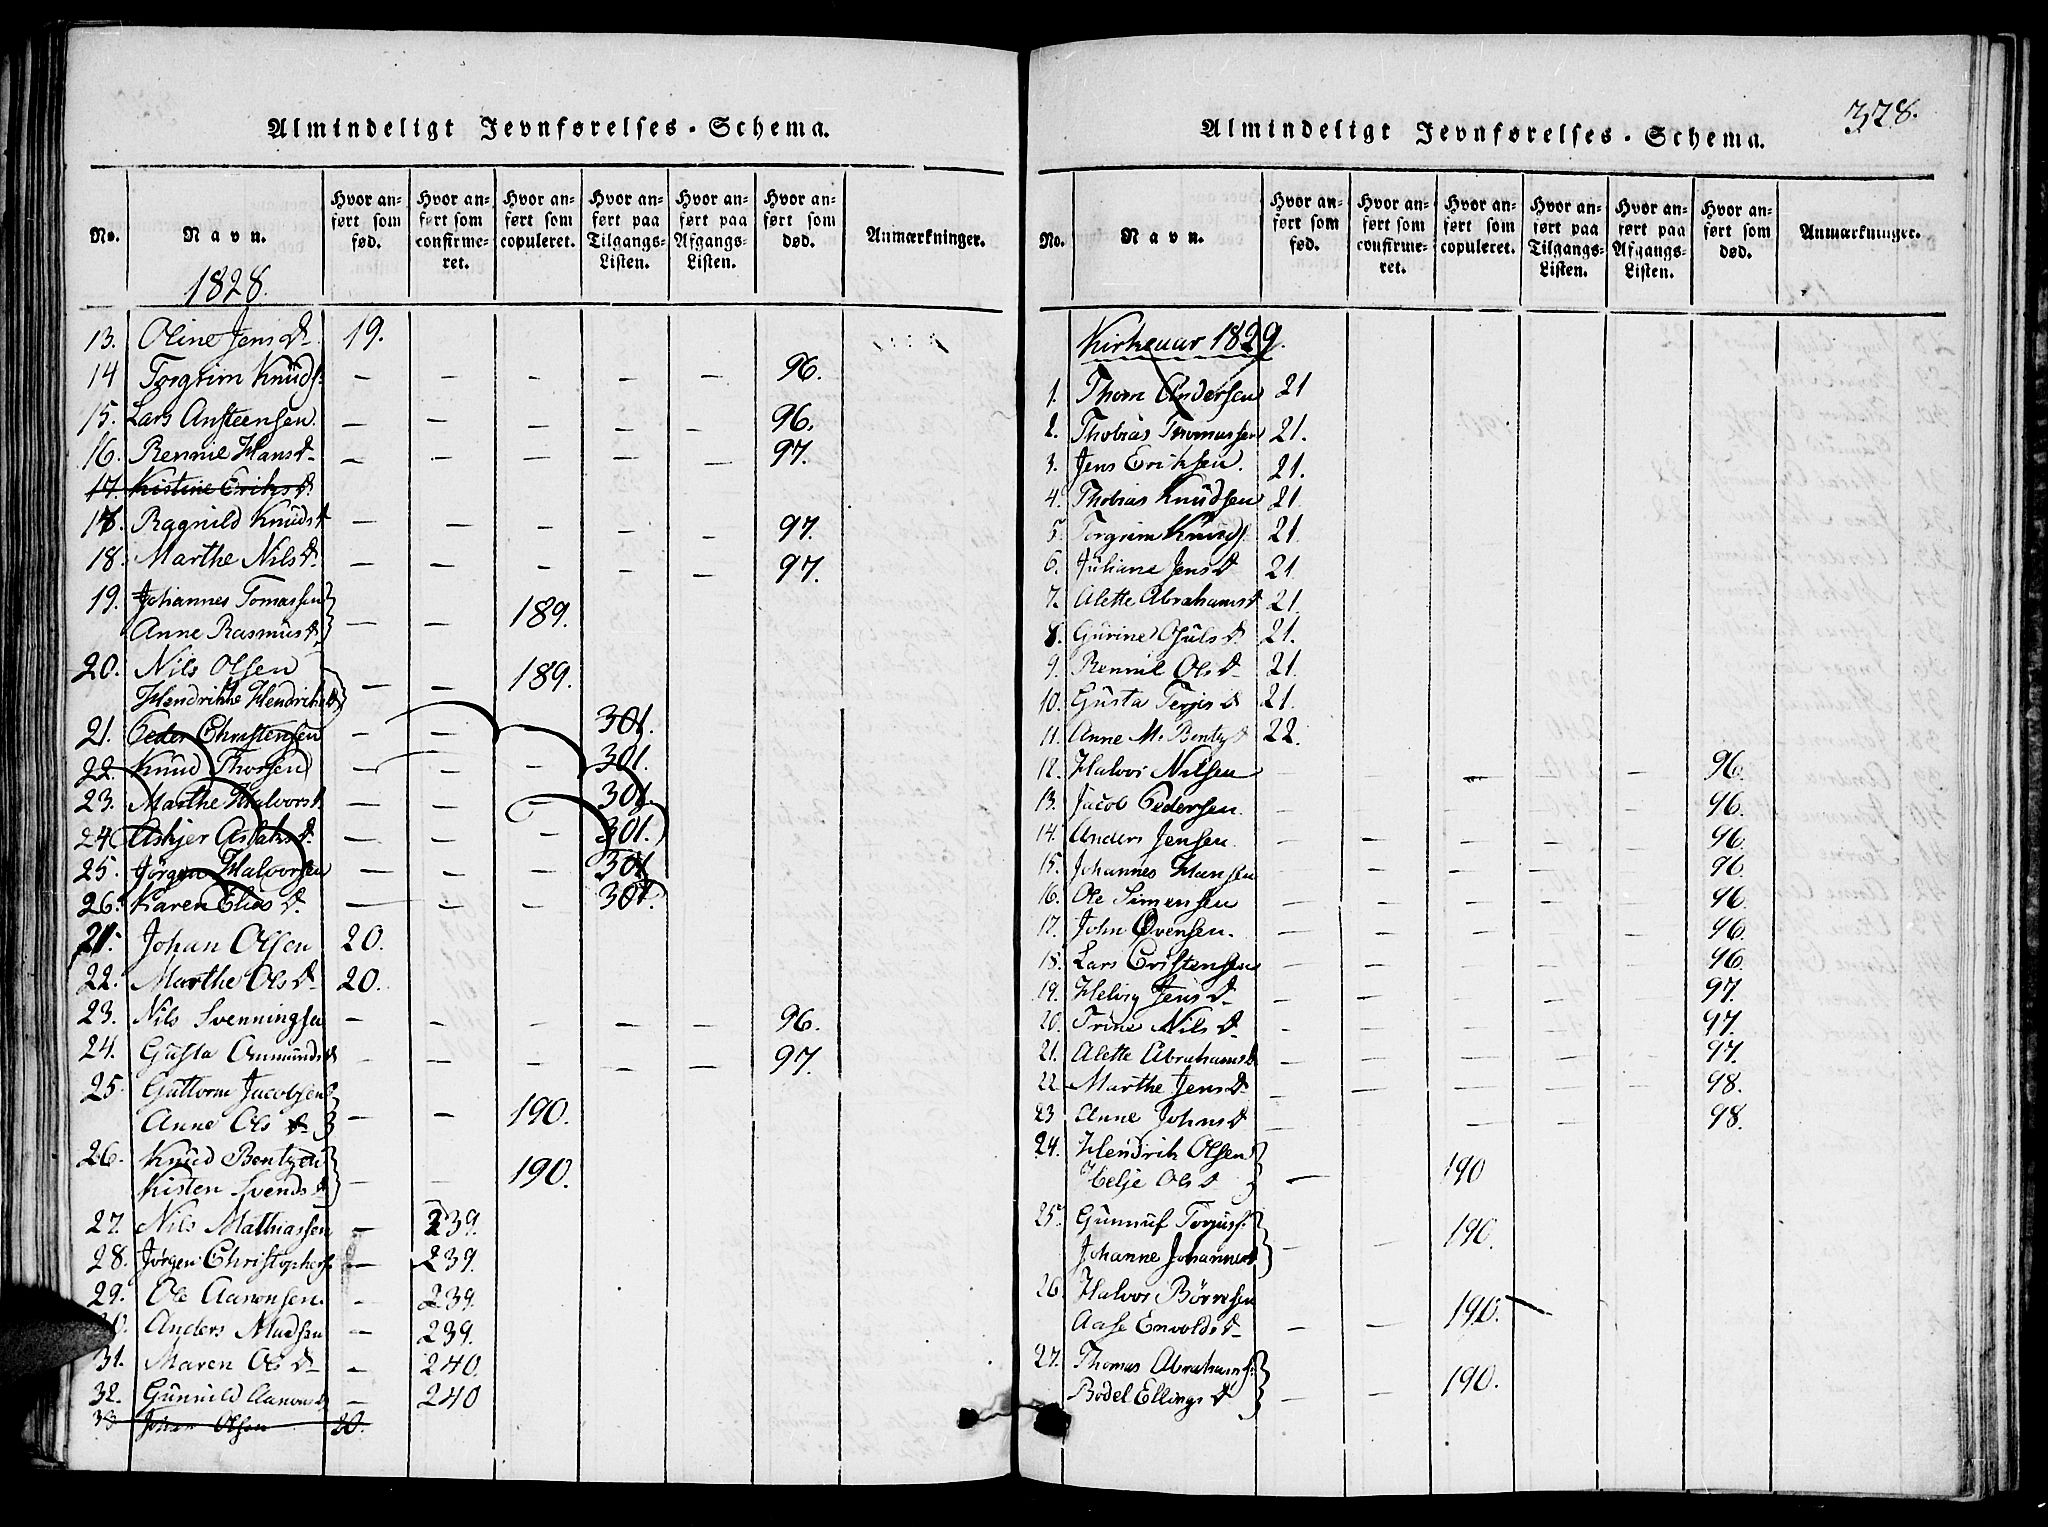 Almindeligt Jevnførelses-Schema.
No. Navn. Hvor anført som fød. Hvor anført som confirmeret. Hvor anført som copuleret. Hvor anført paa Tilgangs-Listen. Hvor anført paa Afgangs-Listen. Hvor anført som død. Anmærkninger.
1828.
13. Oline Jens D. 19.
14 Torgrim Knuds. — — — — — 96.
15. Lars Ansteensen. — — — — — 96.
16. Rennie Hans D. — — — — — 97.
17. Kistine Eriks D.
17. Ragnild Knuds D — — — — — 97.
18. Marthe Nils D. — — — — — 97.
19. Johannes Tomassen
Anne Rasmus D. — — 189.
20. Nils Olsen
Hendrikke Hendriks D — — 189.
21. Peder Christensen — — 301.
22. Knud Thorsen — — — 301.
23. Marthe Halvors D. — — — 301.
24 Askjer Aslaks D. — — — 301.
25. Jörgen Halvorsen — — — 301
26. Karen Elias D. — — — 301.
21. Johan Olsen 20.
22. Marthe Ols D. 20.
23. Nils Svenningsen — — — — — 96.
24. Gusta Ommunds D — — — — — 97.
25. Guttorm Jacobsen
Anne Ols D. — — 190.
26. Knud Bentzen
Kisten Svends D — — 190.
27. Nils Mathiassen — 239.
28. Jörgen Christophers. — 239.
29. Ole Aanonsen. — 239.
30. Anders Madsen — 239.
31. Maren Ols D — 240.
32. Gunnild Aanons D — 240
33 Johan Olsen 20.
328.
Almindeligt Jevnførelses-Schema.
No. Navn. Hvor anført som fød. Hvor anført som confirmeret. Hvor anført som copuleret. Hvor anført paa Tilgangs-Listen. Hvor anført paa Afgangs-Listen. Hvor anført som død. Anmærkninger.
Kirkeaar 1829.
1. Thom Andersen 21
2. Thobias Thomassen 21.
3. Jens Eriksen. 21.
4. Thobias Knudsen 21
5. Torgrim Knuds. 21.
6. Juliane Jens D. 21.
7. Alette Abrahams D 21.
8. Gurine Osuls D. 21.
9. Rennil Ols D. 21.
10. Gusta Terjes D 21.
11. Anne M. Bentz D 22.
12. Halvor Nilsen — — — — 96.
13. Jacob Pedersen. — — — — — 96.
14. Anders Jensen. — — — — — 96.
15. Johannes Hansen — — — — 96.
16. Ole Simensen — — — — — 96.
17. John Ovensen. — — — — — 96.
18. Lars Cristensen — — — — — 96.
19. Helvig Jens D. — — — — — 97.
20. Trine Nils D. — — — — — 97.
21. Alette Abrahams D — — — — — 97.
22. Marthe Jens D. — — — — — 98.
23 Anne Johns D — — — — — 98.
24. Hendrik Olsen
Helje Ols D — 190
25. Gunnuf Torjuss.
Johanne Johannes D — — 190.
26. Halvor Börresen
Aase Envolds D. — — 190. —
27. Thomas Abrahams.
Bodel Ellings D — — 190.